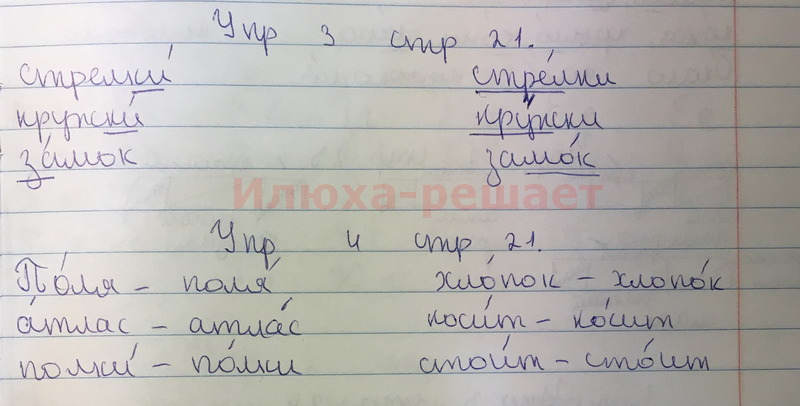 Упр 3 стр 21.
стрелки́ стре́лки
кружки́ кру́жки
за́мок замо́к
Илюха-решает
Упр 4 стр 21.
По́ля - поля́ хло́пок - хлопо́к
а́тлас - атла́с коси́т - ко́сит
полки́ - по́лки стои́т - сто́ит